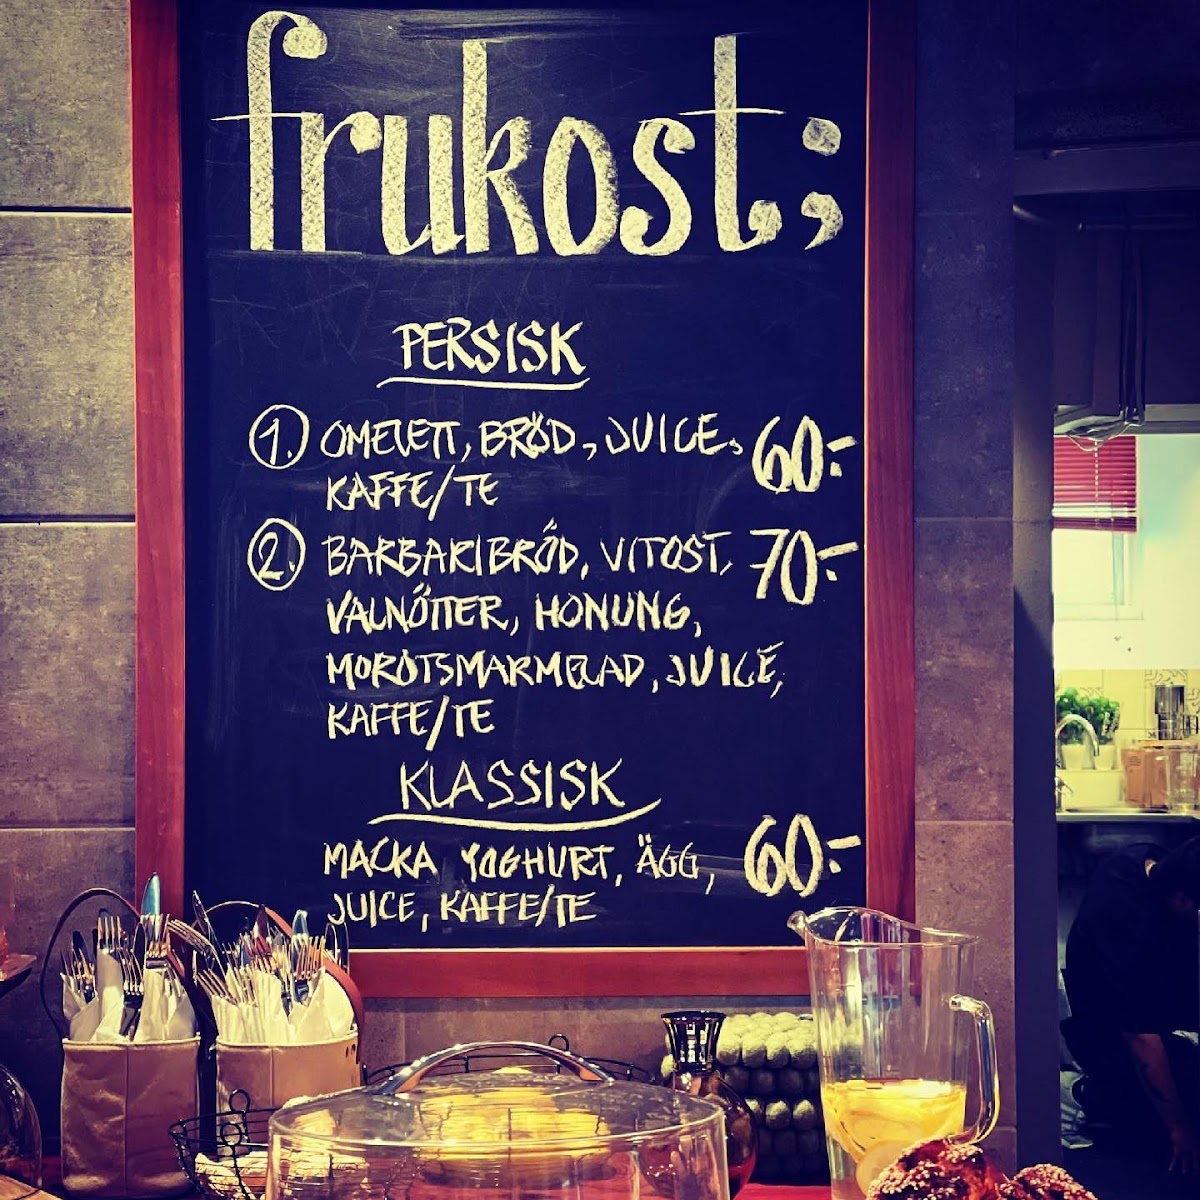 frukost;
PERSISK
1. OMELETT, BRÖD, JUICE, 60:-
KAFFE/TE
2. BARBARIBRÖD, VITOST, 70:-
VALNÖTTER, HONUNG,
MOROTSMARMELAD, JUICE,
KAFFE/TE
KLASSISK
MACKA YOGHURT, ÄGG, 60:-
JUICE, KAFFE/TE